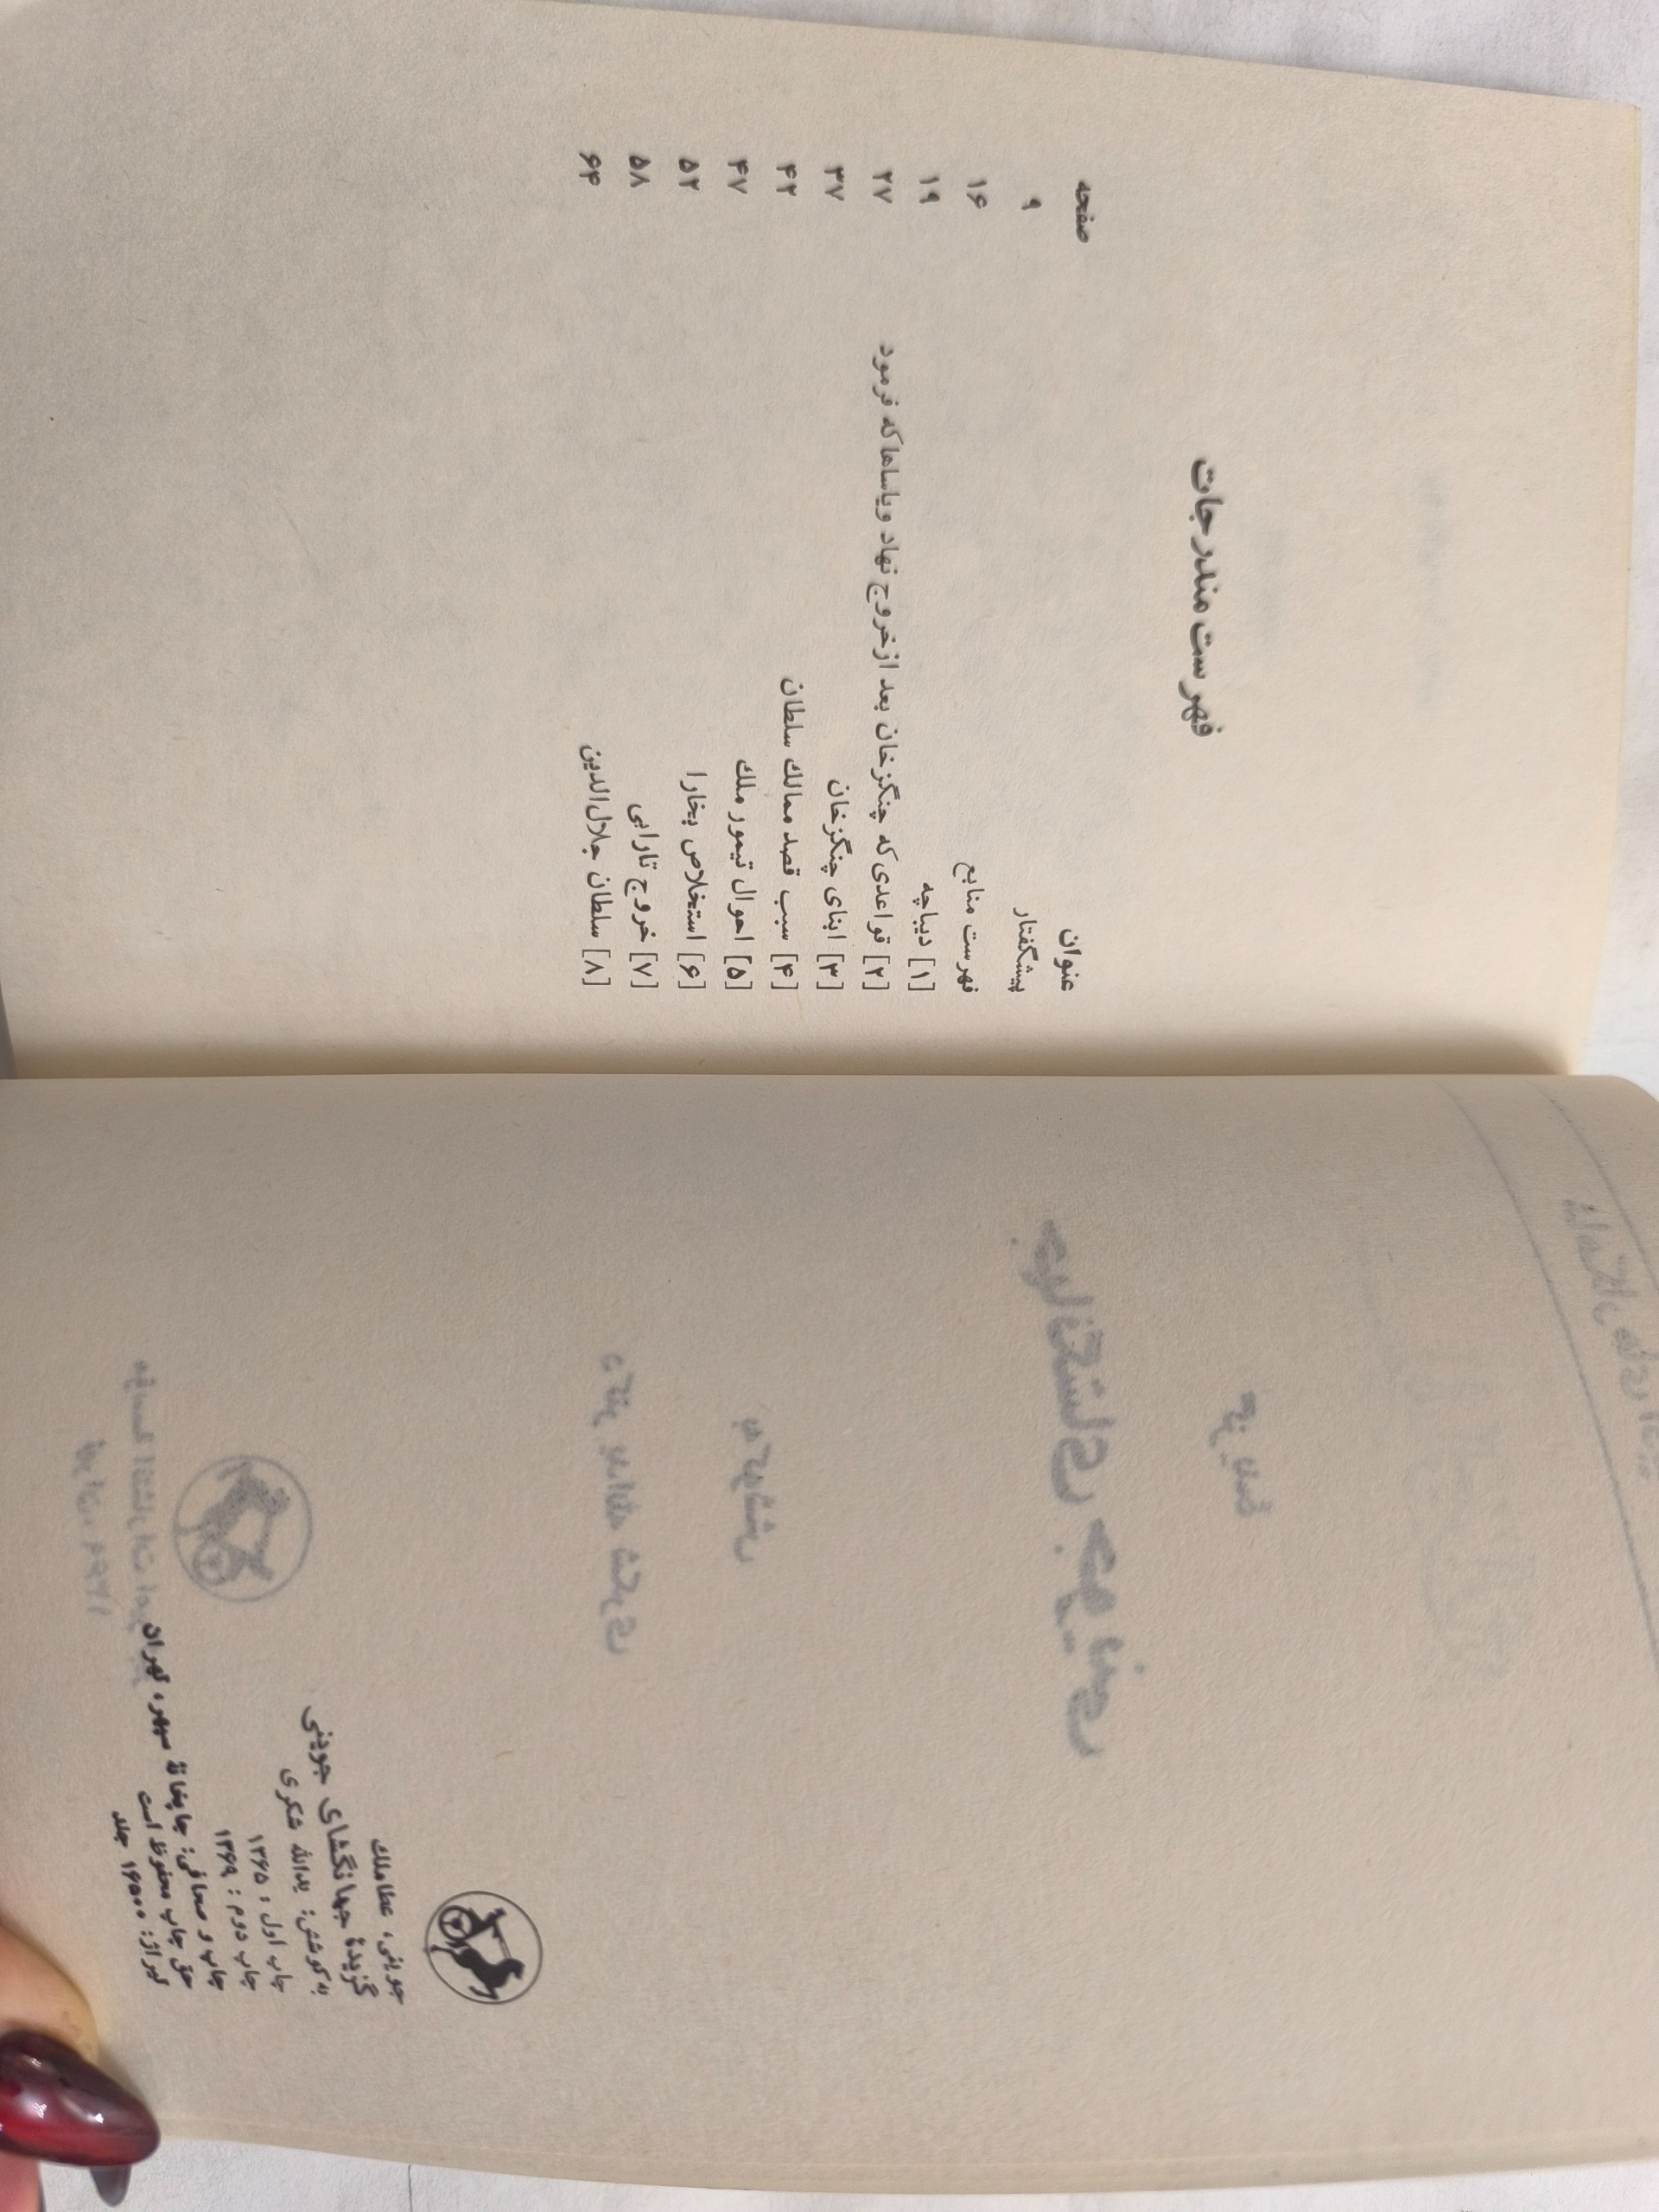 فهرست مندرجات
عنوان صفحه
پیشگفتار ۹
فهرست منابع ۱۶
[۱] دیباچه ۱۹
[۲] قواعدی که چنگزخان بعد از خروج نهاد ویاساها که فرمود ۲۷
[۳] ابنای چنگزخان ۳۷
[۴] سبب قصد ممالك سلطان ۴۲
[۵] احوال تیمور ملك ۴۷
[۶] استخلاص بخارا ۵۲
[۷] خروج تارابی ۵۸
[۸] سلطان جلال‌الدین ۶۴
جوینی، عطاملك
گزیدهٔ جهانگشای جوینی
به کوشش: یدالله شکری
چاپ اول: ۱۳۶۵
چاپ دوم: ۱۳۶۹
چاپ و صحافی: چاپخانهٔ سپهر، تهران
حق چاپ محفوظ است
تیراژ: ۱۶۵۰۰ جلد